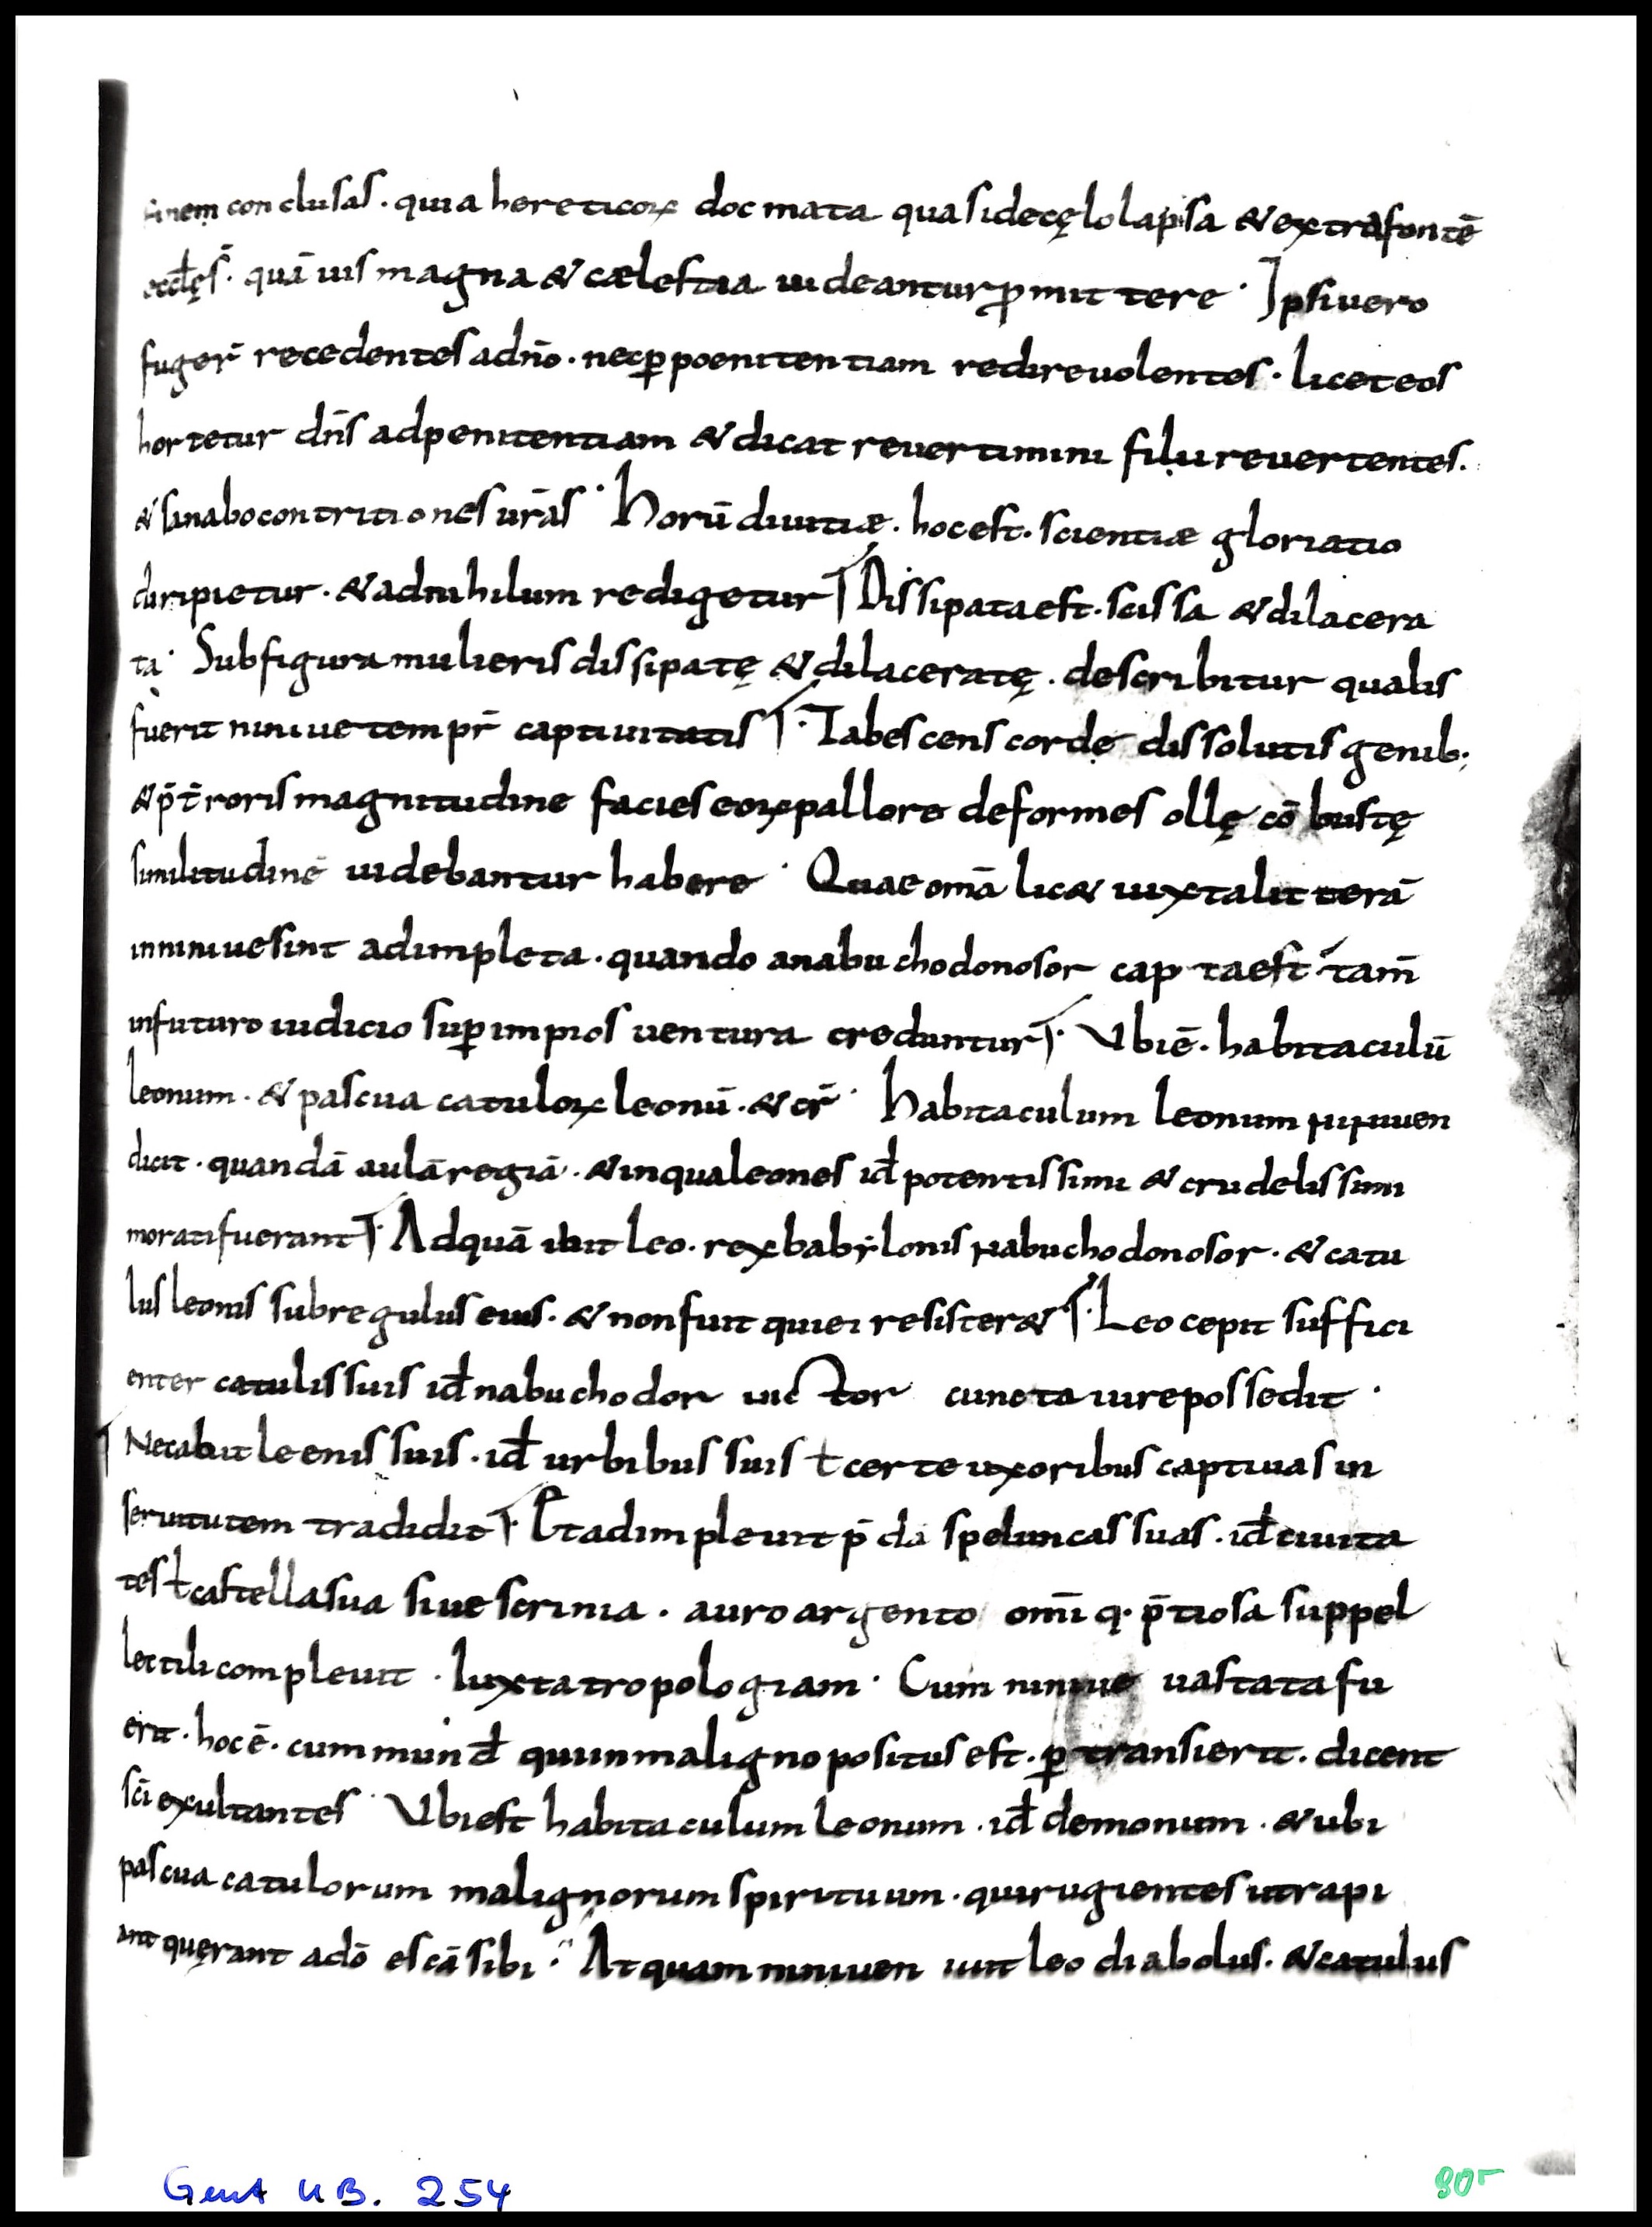 finem conclusas · quia hereticoꝝ docmata quasi de cęlo lapsa & extra fontē
eccłęs̄ · quāuis magna & cælestia uideantur ꝓmittere · Ipsi uero
fuger̄ recedentes ad n̄o · nec ꝑ poenitentiam redire uolentes · licet eos
hortetur dn̄s ad penitentiam & dicat reuertimini filii reuertentes ·
& sanabo contritiones ur̄as · horū diuitiæ · hoc est · scientiæ gloriatio
diripietur · & ad nihilum redigetur Dissipata est · scissa & dilacera
ta · Sub figura mulieris dissipatę & dilaceratę · describitur qualis
fuerit niniue tempr̄ captiuitatis · Tabescens corde dissolutis genib;
& p̄ t̄roris magnitudine facies eoꝝ pallore deformes ollę cōbustę
similitudinē uidebantur habere · Quae omā lic& iuxta litterā
in niniue sint adimpleta · quando a nabuchodonosor capta est tam̄
in futuro iudicio suꝑ impios uentura creduntur · Vbi ē · habitaculū
leonum · & pascua catuloꝝ leonū · & cr̄ · habitaculum leonum niniuen
dicit · quandā aulā regiā · & in qua leones id̄ potentissimi & crudelissimi
morati fuerant · Ad quā ibit leo · rex babẏlonis nabuchodonosor · & catu
lus leonis subregulus eius · & non fuit qui ei resister& · Leo cepit suffici
enter catulis suis id̄ nabuchodor uictor cuncta iure possedit ·
Necabit leenis suis · id̄ urbibus suis ł certe uxoribus captiuas in
seruitutem tradidit · Et adimpleuit p̄da speluncas suas · id̄ ciuita
tes ł castella sua siue scrinia · auro argento omīq· p̄tiosa suppel
lectili compleuit · Iuxta tropologiam · Cum niniue uastata fu
erit · hoc ē · cum mund̄ qui in maligno positus est · ꝑtransierit · dicent
sc̄i exultantes · Vbi est habitaculum leonum · id̄ demonum · & ubi
pascua catulorum malignorum spirituum · qui rugientes ut rapi
ant quęrant a dō escā sibi · At quam niniuen iuit leo diabolus · & catulus
Gent UB. 254
90r